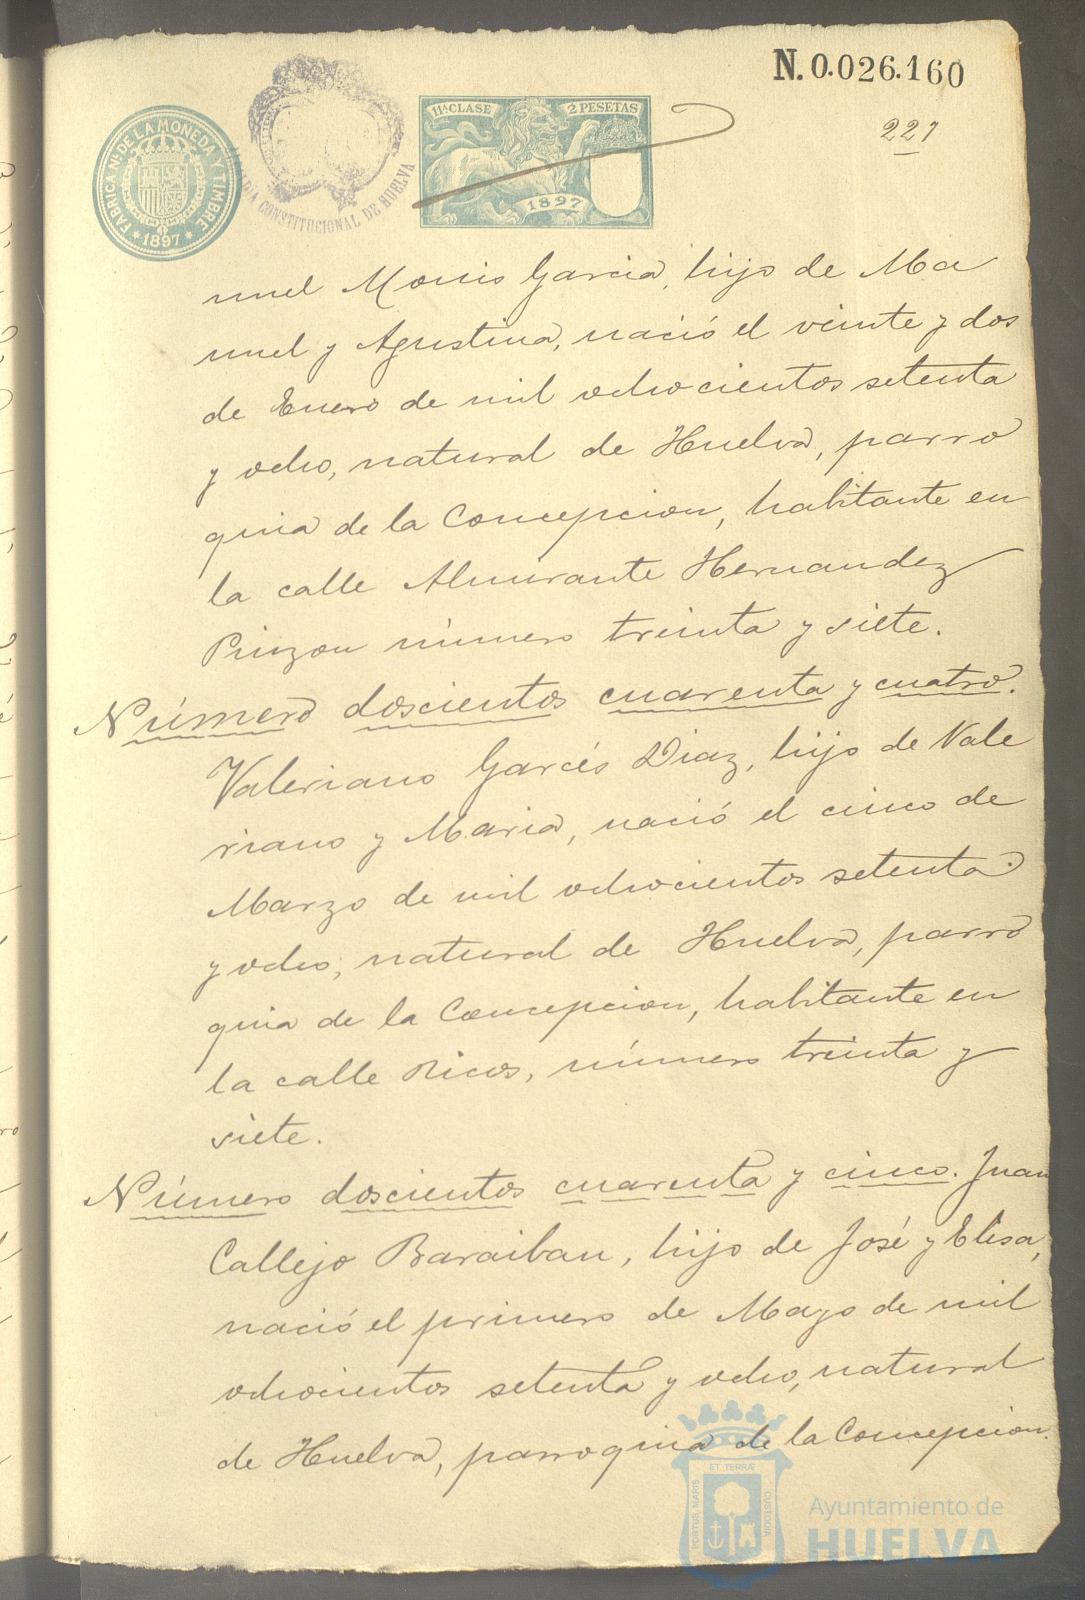 N. 0.026.160
221
FABRICA NL. DE LA MONEDA Y TIMBRE
* 1897 *
CONSTITUCIONAL DE HUELVA
11ª CLASE
2 PESETAS
1897
nuel Monis Garcia, hijo de Ma
nuel y Agustina, nació el veinte y dos
de Enero de mil ochocientos setenta
y ocho, natural de Huelva, parro
quia de la Concepcion, habitante en
la calle Almirante Hernandez
Pinzon número treinta y siete.
Número doscientos cuarenta y cuatro.
Valeriano Garcés Diaz, hijo de Vale
riano y Maria, nació el cinco de
Marzo de mil ochocientos setenta
y ocho, natural de Huelva, parro
quia de la Concepcion, habitante en
la calle Ricos, número treinta y
siete.
Número doscientos cuarenta y cinco. Juan
Callejo Baraiban, hijo de José y Elisa,
nació el primero de Mayo de mil
ochocientos setenta y ocho, natural
de Huelva, parroquia de la Concepcion.
PORTUS MARIS
ET TERRÆ
CUSTODIA
Ayuntamiento de
HUELVA